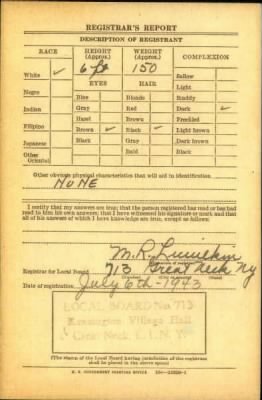 REGISTRAR'S REPORT
DESCRIPTION OF REGISTRANT
RACE HEIGHT (Approx.) WEIGHT (Approx.) COMPLEXION
White ✓ 6 ft 150 Sallow
EYES HAIR Light
Negro Blue Blonde Ruddy
Indian Gray Red Dark ✓
Hazel Brown Freckled
Filipino Brown ✓ Black ✓ Light brown
Japanese Black Gray Dark brown
Other White Black
Oriental Bald
Other obvious physical characteristics that will aid in identification
NONE
I certify that my answers are true; that the person registered has read or has had
read to him his own answers; that I have witnessed his signature or mark and that
all of his answers of which I have knowledge are true, except as follows:
M. R.
Registrar for Local Board 713 Great Neck Ny
Date of registration July 6th - 1943
LOCAL BOARD No. 713
Kensington Village Hall
Great Neck, L. I., N. Y.
(The stamp of the Local Board having jurisdiction of the registrant
shall be placed in the above space)
U. S. GOVERNMENT PRINTING OFFICE